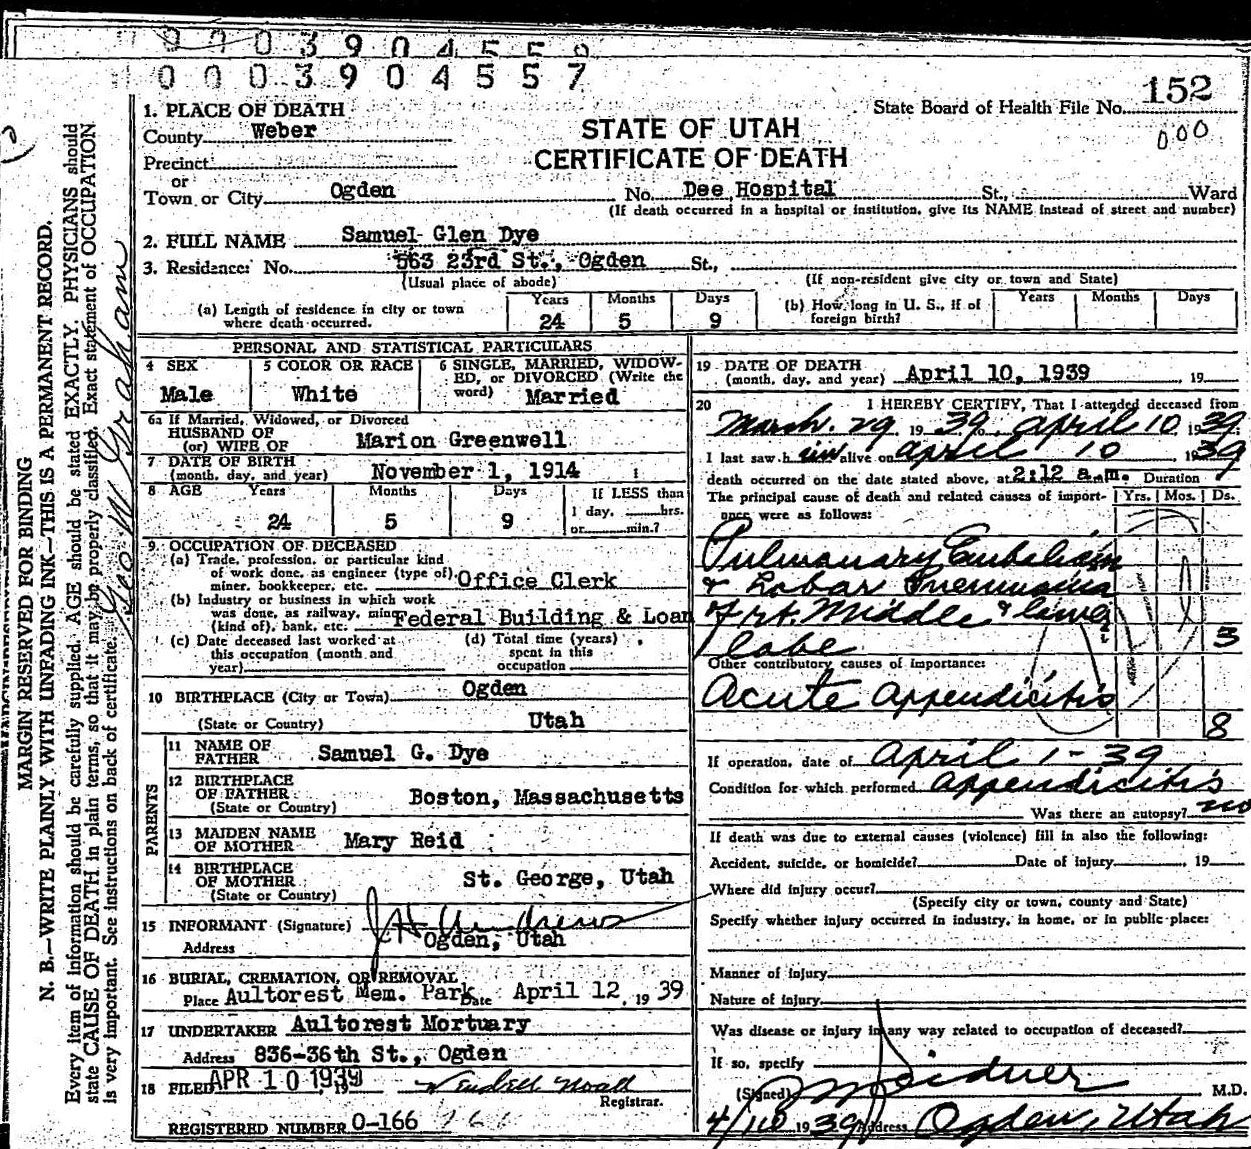 0003904559
0003904557
152
State Board of Health File No.
000
1. PLACE OF DEATH
County Weber
STATE OF UTAH
CERTIFICATE OF DEATH
Precinct
or
Town or City Ogden No. Dee Hospital St., Ward
(If death occurred in a hospital or institution, give its NAME instead of street and number)
2. FULL NAME Samuel Glen Dye
3. Residence: No. 563 23rd St., Ogden St.,
(Usual place of abode) (If non-resident give city or town and State)
(a) Length of residence in city or town where death occurred. Years 24 Months 5 Days 9
(b) How long in U. S., if of foreign birth? Years Months Days
PERSONAL AND STATISTICAL PARTICULARS
4 SEX Male
5 COLOR OR RACE White
6 SINGLE, MARRIED, WIDOW-
ED, or DIVORCED (Write the
word) Married
6a If Married, Widowed, or Divorced
HUSBAND OF
(or) WIFE OF Marion Greenwell
7 DATE OF BIRTH
(month, day, and year) November 1, 1914
8 AGE Years 24 Months 5 Days 9
If LESS than
1 day, hrs.
or min.?
9. OCCUPATION OF DECEASED
(a) Trade, profession, or particular kind
of work done, as engineer (type of),
miner, bookkeeper, etc. Office Clerk
(b) Industry or business in which work
was done, as railway, mine
(kind of), bank, etc. Federal Building & Loan
(c) Date deceased last worked at
this occupation (month and
year)
(d) Total time (years)
spent in this
occupation
10 BIRTHPLACE (City or Town) Ogden
(State or Country) Utah
PARENTS
11 NAME OF
FATHER Samuel G. Dye
12 BIRTHPLACE
OF FATHER Boston, Massachusetts
(State or Country)
13 MAIDEN NAME
OF MOTHER Mary Reid
14 BIRTHPLACE
OF MOTHER St. George, Utah
(State or Country)
15 INFORMANT (Signature) J H Andrews
Address Ogden, Utah
16 BURIAL, CREMATION, OR REMOVAL
Place Aultorest Mem. Park Date April 12, 1939
17 UNDERTAKER Aultorest Mortuary
Address 836-36th St., Ogden
18 FILED APR 10 1939 Wendell Noall
Registrar.
REGISTERED NUMBER 0-166 166
19 DATE OF DEATH
(month, day, and year) April 10, 1939, 19
20 I HEREBY CERTIFY, That I attended deceased from
March 29 1939 to April 10 1939
I last saw him alive on April 10 1939
death occurred on the date stated above, at 2:12 a.m. Duration
The principal cause of death and related causes of import-
ance were as follows: Yrs. Mos. Ds.
Pulmonary Embolism
& Lobar Pneumonia
of rt. Middle & lower
lobe 3
Other contributory causes of importance:
Acute appendicitis
8
If operation, date of April 1-39
Condition for which performed appendicitis
Was there an autopsy? no
If death was due to external causes (violence) fill in also the following:
Accident, suicide, or homicide? Date of injury , 19
Where did injury occur?
(Specify city or town, county and State)
Specify whether injury occurred in industry, in home, or in public place:
Manner of injury
Nature of injury
Was disease or injury in any way related to occupation of deceased?
If so, specify
(Signed) M.D.
4/10 1939 Address Ogden, Utah
MARGIN RESERVED FOR BINDING
N. B.—WRITE PLAINLY WITH UNFADING INK—THIS IS A PERMANENT RECORD.
Every item of information should be carefully supplied. AGE should be stated EXACTLY. PHYSICIANS should
state CAUSE OF DEATH in plain terms, so that it may be properly classified. Exact statement of OCCUPATION
is very important. See instructions on back of certificate.
Geo W Graham